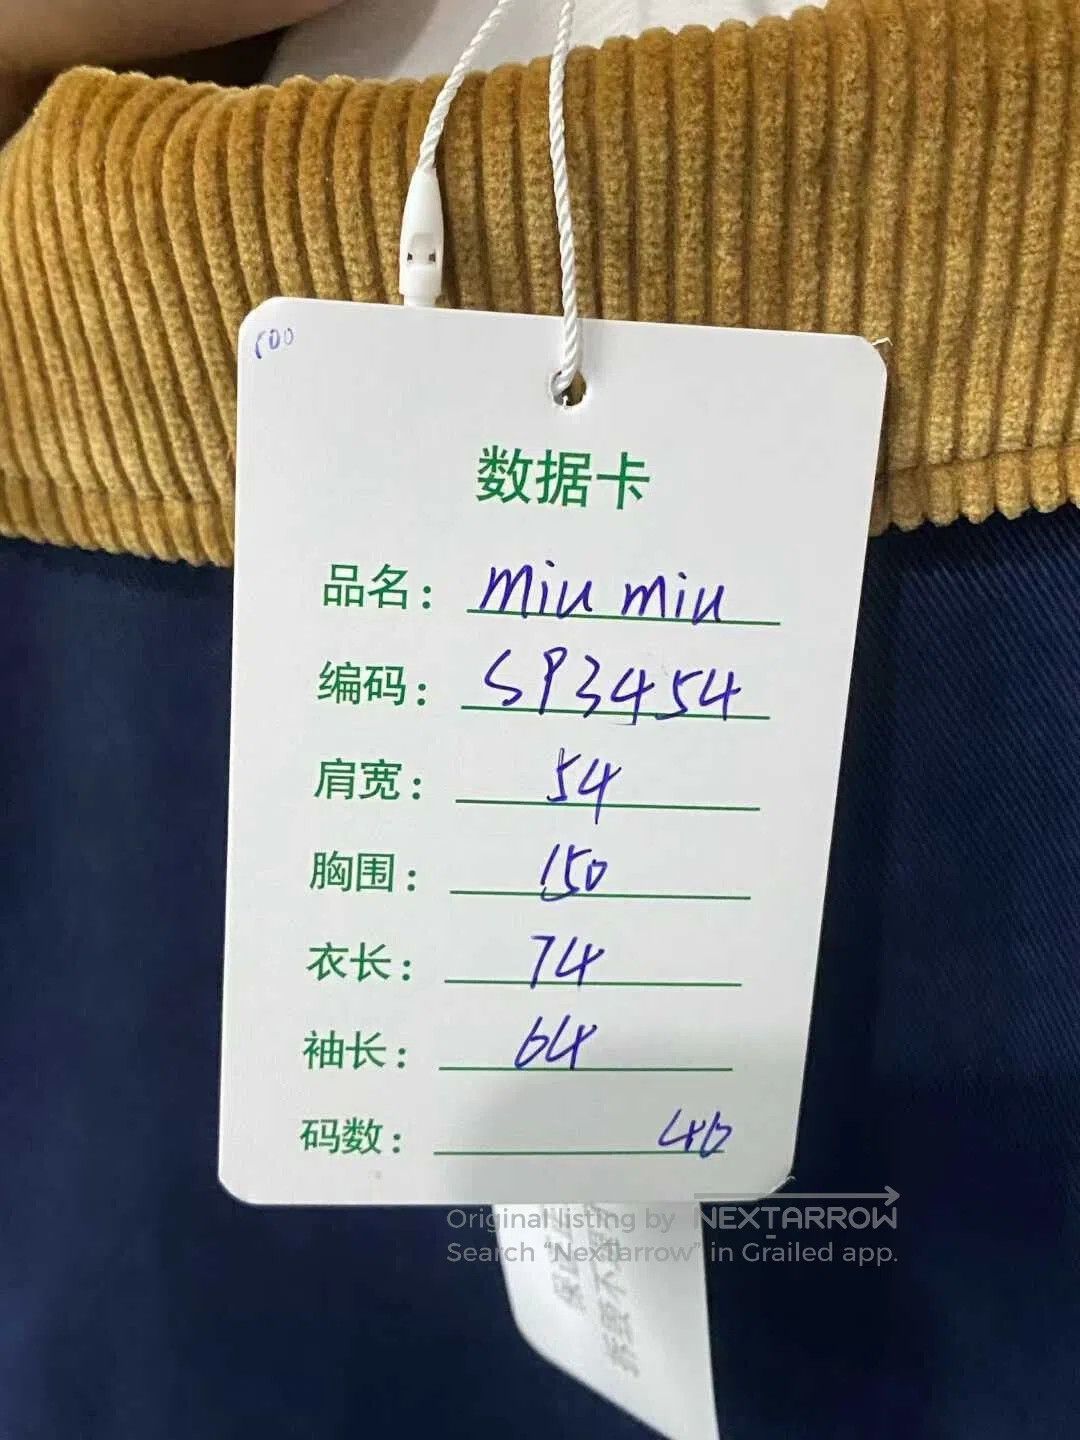 500
数据卡
品名: miu miu
编码: SP3454
肩宽: 54
胸围: 150
衣长: 74
袖长: 64
码数: 46
Original listing by NEXTARROW
Search “NexTarrow” in Grailed app.